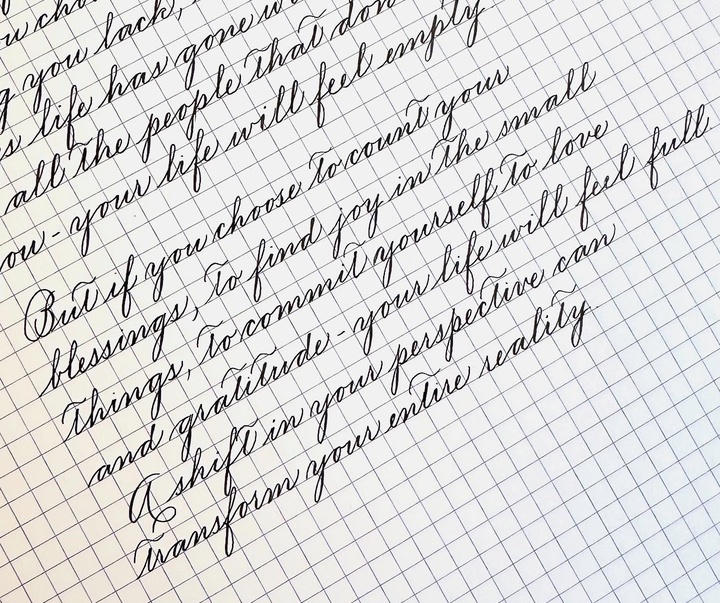 you lack,
life has gone
all the people that don
ow - your life will feel empty
But if you choose to count your
blessings, to find joy in the small
things, to commit yourself to love
and gratitude - your life will feel full
A shift in your perspective can
transform your entire reality